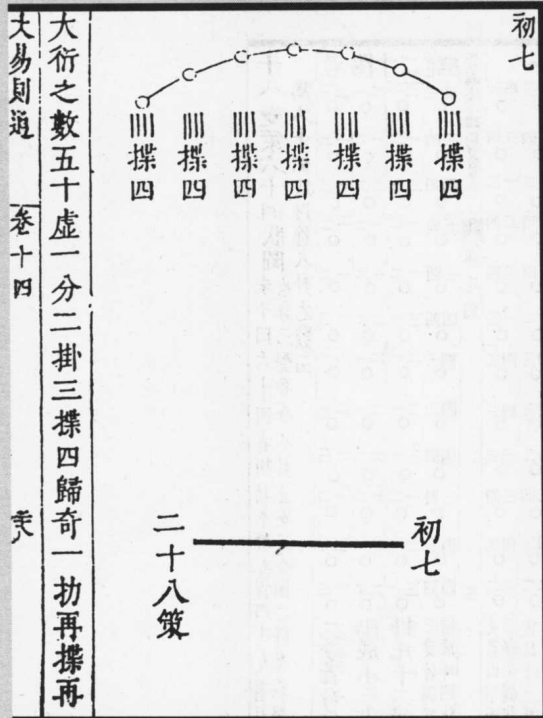 初七
揲四
揲四
揲四
揲四
揲四
揲四
揲四
初七
二十八策
大衍之數五十虛一分二掛三揲四歸奇一扐再揲再
大易則通
卷十四